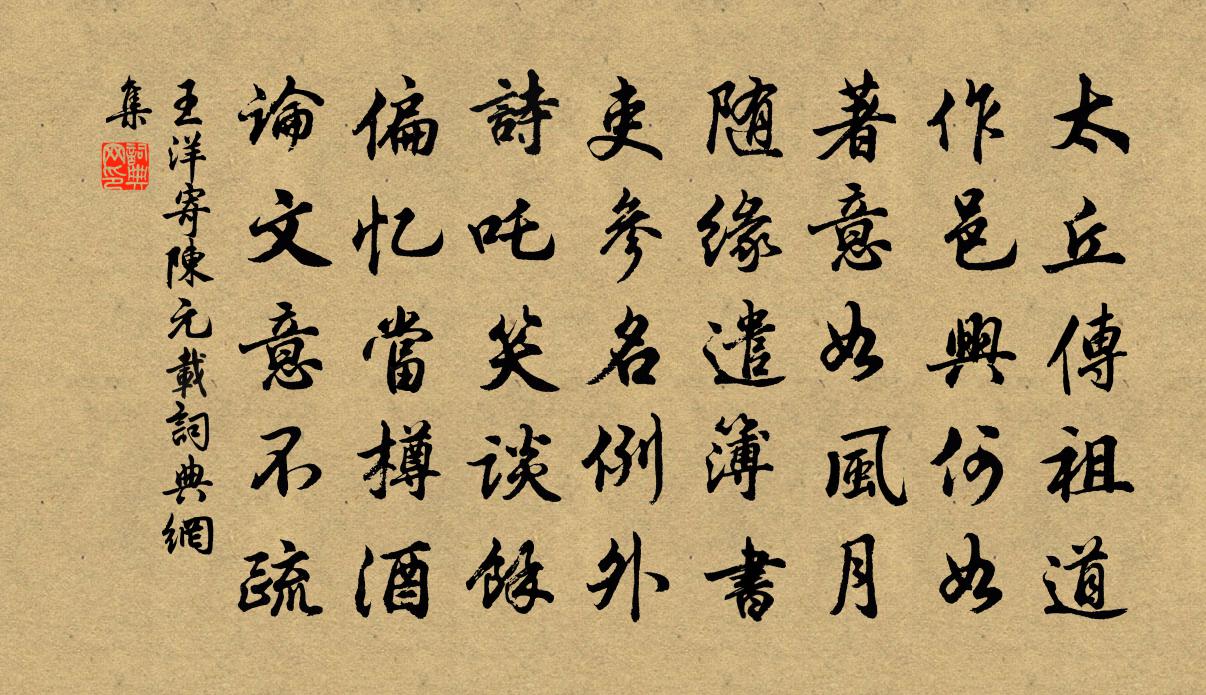 太丘傳祖道
作邑興何如
著意如風月
随缘遣簿書
吏參名例外
詩吒笑談餘
偏忆當樽酒
論文意不疏
王洋寄陳元載詞典網
集
詞典
网印